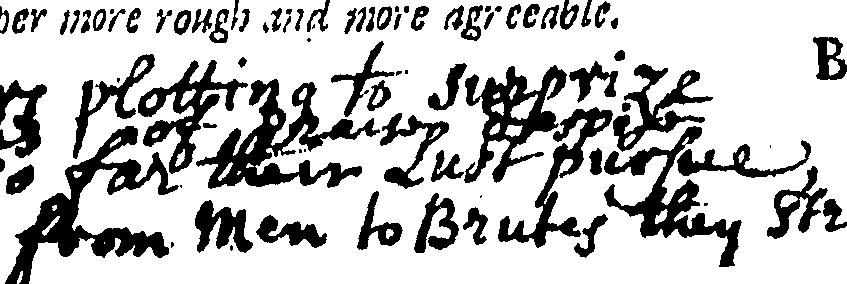 her more rough and more agreeable.
B
plotting to surprize
of praise despise
so far their Lust pursue,
from Men to Brutes they Str